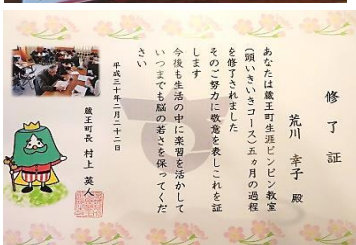 修了証
荒川 幸子 殿
あなたは蔵王町生涯ピンピン教室
(頭いきいきコース)五ヵ月の過程
を修了されました
そのご努力に敬意を表しこれを証
します
今後も生活の中に楽習を活かして
いつまでも脳の若さを保ってくだ
さい
平成三十年二月二十二日
蔵王町長 村上 英人